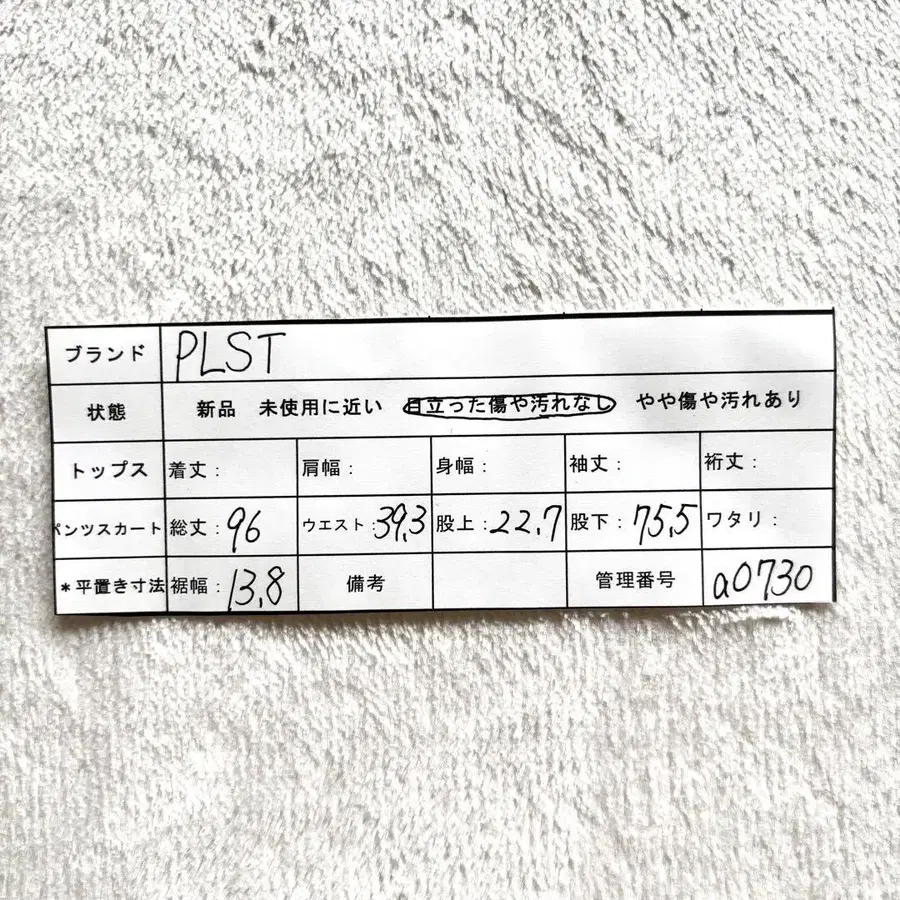 ブランド PLST
状態 新品 未使用に近い 目立った傷や汚れなし やや傷や汚れあり
トップス 着丈: 肩幅: 身幅: 袖丈: 裄丈:
パンツスカート 総丈:96 ウエスト:39,3 股上:22,7 股下:75,5 ワタリ:
*平置き寸法 裾幅:13,8 備考 管理番号 a0730